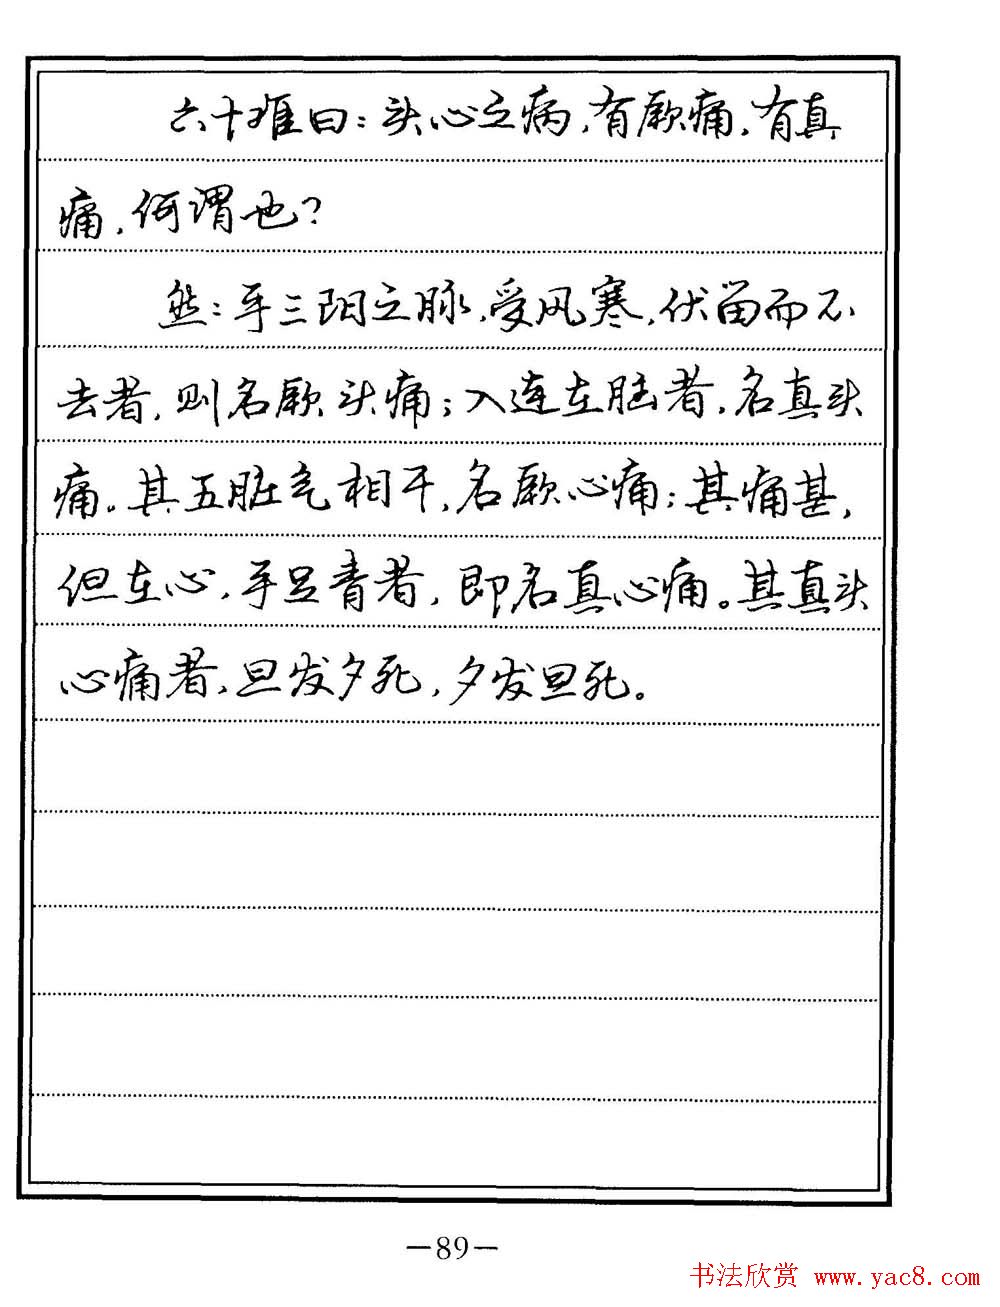 六十难曰：头心之病，有厥痛，有真
痛，何谓也？
然：手三阳之脉，受风寒，伏留而不
去者，则名厥头痛；入连在脑者，名真头
痛。其五脏气相干，名厥心痛；其痛甚，
但在心，手足青者，即名真心痛。其真头
心痛者，旦发夕死，夕发旦死。
—89—
书法欣赏 www.yac8.com